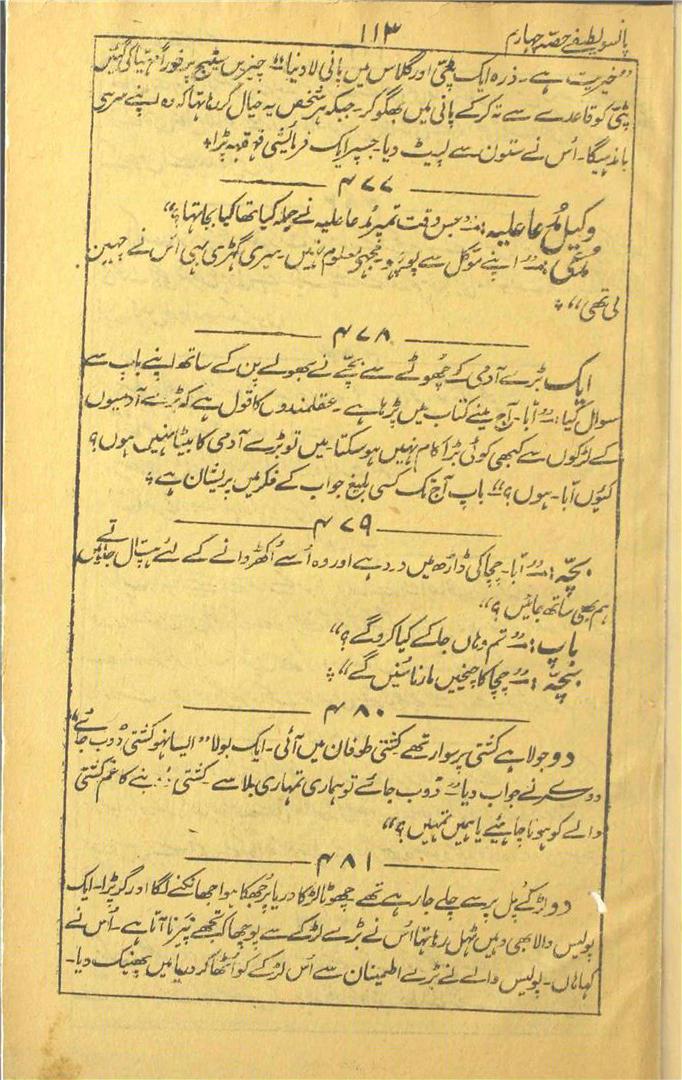 پانسو لطیفے حصہ چہارم ۱۱۳
"خیریت ہے۔ ذرہ ایک پٹی اور گلاس میں پانی لا دینا" چیزیں سٹیج پر فوراً مہیا کی گئیں
پٹی کو قاعدے سے تہ کر کے پانی میں بھگو کر۔ جبکہ ہر شخص یہ خیال کر رہا تہا کہ وہ اپنے سر سی
باندہیگا۔ اُس نے ستون سے لپیٹ دیا۔ جسپر ایک فرمایشی قہقہہ پڑا؞
۴۷۷
وکیل مُدعا علیہ:۔ "جس وقت تمپر مُدعا علیہ نے حملہ کیا تھا کیا بجا تھا؟"
مُدعی:۔ "اپنے موکّل سے پوچھو مجھے معلوم نہیں۔ میری گھڑی بھی اُس نے چھین
لی تھی"؞
۴۷۸
ایک بڑے آدمی کے چھوٹے سے بچّے نے بھولے پن کے ساتھ اپنے باپ سے
سوال کیا:۔ "ابّا۔ آج مینے کتاب میں پڑہا ہے۔ عقلمندوں کا قول ہے کہ بڑے آدمیوں
کے لڑکوں سے کبھی کوئی بڑا کام نہیں ہو سکتا۔ میں تو بڑے آدمی کا بیٹا نہیں ہوں؟
کیوں ابّا۔ ہوں؟" باپ آج تک کسی بلیغ جواب کے فکر میں پریشان ہے؞
۴۷۹
بچّہ:۔ "ابّا۔ چچا کی ڈاڑھ میں درد ہے اور وہ اُسے اُکھڑوانے کے لئے ہسپتال جاتے ہیں
ہم بھی ساتھ جائیں؟"
باپ:۔ "تم وہاں جا کے کیا کرو گے؟"
بچّہ:۔ "چچا کا چیخیں مارنا سُنیں گے"؞
۴۸۰
دو جولاہے کشتی پر سوار تھے کشتی طوفان میں آئی۔ ایک بولا "ایسا نہو کشتی ڈوب جائے"
دوسرے نے جواب دیا۔ "ڈوب جائے تو ہماری تمہاری بلا سے۔ کشتی ڈوبنے کا غم کشتی
والے کو ہونا چاہئیے یا ہمیں تمہیں؟"
۴۸۱
دو لڑکے پُل پر سے چلے جا رہے تھے۔ چھوٹا لڑکا دریا پر جھکا ہوا جھانکنے لگا اور گر پڑا۔ ایک
پولیس والا بھی وہیں ٹہل رہا تہا اُس نے بڑے لڑکے سے پوچھا کہ تجھے تیرنا آتا ہے۔ اُس نے
کہا ہاں۔ پولیس والے نے بڑے اطمینان سے اُس لڑکے کو اُٹھا کر دریا میں پھینک دیا۔